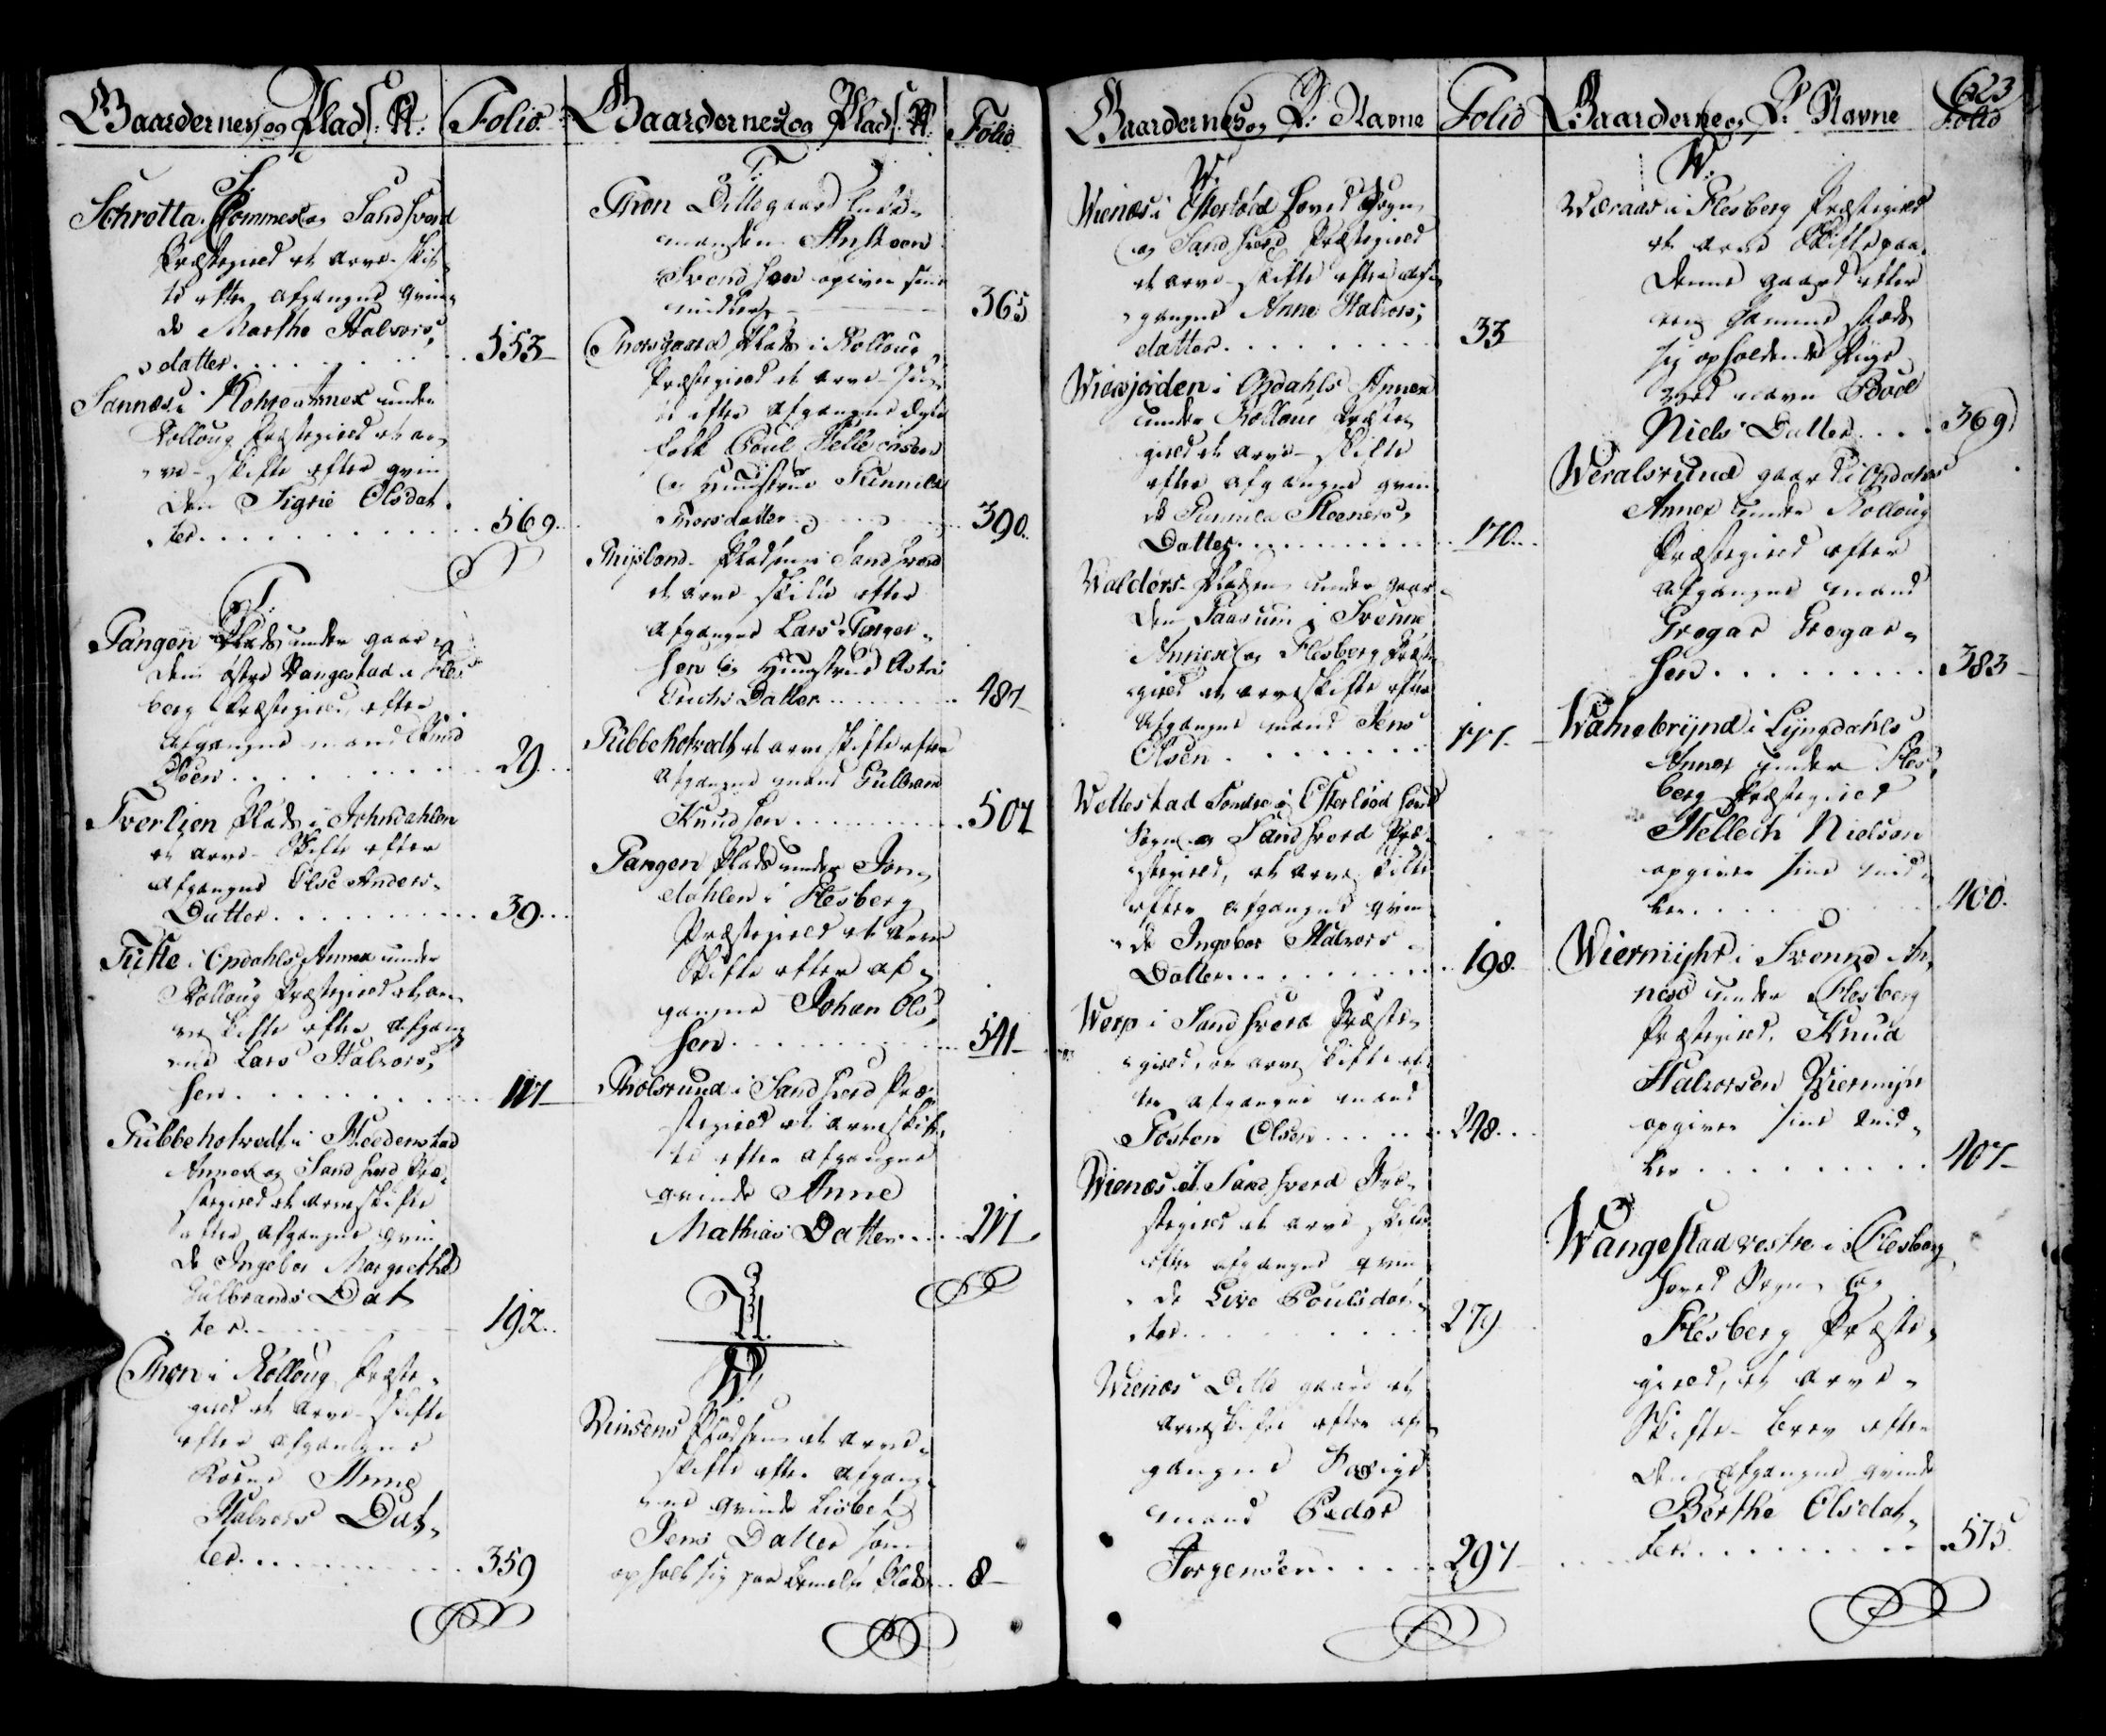 Gaardernes og Plads: N:
Folio
S.
Schrotta, Sandsverd
Præstegield et arve-skif-
te efter afgangne qvin-
de Marthe Halvors-
datter. 553
Sannes i Annex under
Rolloug Præstegield et ar-
ve-skifte efter qvin-
den Sigrie Olsdat-
ter. 569.
T.
Tangen Plads under gaar-
den østre Wangestad i Fles-
berg Præstegield, efter
afgangne mand Knud
Olsen. 29.
Tverlien Plads i Johndahlen
et arve-Skifte efter
afgangne Else Anders-
Datter. 39.
Tufte i Opdahls Annex under
Rolloug Præstegield et ar-
veskifte efter afgang-
ne Lars Halvors-
sen. 117
Tubbeholvedt i Heedenstad
Annex og Sandsverd Præ-
stegield et arveskifte
efter afgangne qvin-
de Ingebor Margrethe
Gulbrands Dat-
ter. 192.
Thon i Rolloug Præste-
gield et Arve-skifte
efter afgangne
Kone Anne
Halvors Dat-
ter. 359
Gaardernes og Plads: N:
Folio
T.
Thon Ditte gaard
manden
Svendsen opgiver sine
midler 365
Thorsgaard Plads i Rolloug
Præstegield et arve-
te efter afgangne ægte
folk Poul Hellechsen
og Hustrue Gunnild
Thorsdatter 390.
Thijsland Pladsen i Sandsverd
et arve skifte efter
afgangne Lars Torger-
sen og Hustrue Astri
Erichs Datter 487
Tubbeholvedt et arveskifte efter
afgangne mand Gulbrand
Knudsen. 507
Tangen Plads under Jon-
dahlen i Flesberg
Præstegield et Arve
Skifte efter af-
gangne Johan Ols-
sen. 541
Tholsrund i Sandsverd Præ-
stegield et arveskif-
te efter afgangne
qvinde Anne
Mathias Datter. 241
U.
W.
Winsens Pladsen et arve-
skifte efter afgang-
ne qvinde Lisbet
Jens Datter som
opholt sig paa bemelte Plads. 8
Gaardernes og P: Navne
Folio
W.
Wienæs i Efterløød hoved Sogn
og Sandsverd Præstegield
et arve-skifte efter af-
gangne Anne Halvors-
datter. 33
i Opdahls Annex
under Rolloug Præste-
gield et arve-skifte
efter afgangne qvin-
de Gunnild Steners-
Datter. 170.
Walders-Pladsen under gaar-
den i Svenne
Annex og Flesberg Præste-
gield et arveskifte efter
afgangne mand Jens
Olsen. 177.
Wellestad Søndre i Efterløød hoved
Sogn og Sandsverd Præ-
stegield, et arve skifte
efter afgangne qvin-
de Ingebor Halvors-
Datter. 198.
Werp i Sandsverd Præste-
gield, et arveskifte ef-
ter afgangne mand
Tosten Olsen. 248.
Wienæs i Sandsverd Præ-
stegield et arve-skifte
efter afgangne qvin-
de Live Poulsdat-
ter. 279
Wienæs Ditto gaard et
arveskifte efter af-
gangne
mand Peder
Jorgensen. 297
623
Gaarderne og P: Navne
Folio
W.
Wæraas i Flesberg Præstegield
et arve Skifte paa
denne gaard efter
samme stæds
sig opholdende Pige
ved navn Boel
Niels Datter. 369
Weralsrund gaard i Opdahls
Annex under Rolloug
Præstegield efter
afgangne mand
Gregar Gregar-
sen. 383
Wamebrynd i Lyngdahls
Annex under Fles-
berg Præstegield
Hellech Nielsen
opgiver sine mid-
ler. 400.
Wiermyhr i Svenne An-
nex under Flesberg
Præstegield. Knud
Halvorsen Wiermijr
opgiver sine mid-
ler. 407
Wangestad vestre i Flesberg
hoved Sogn og
Flesberg Præste-
gield, et arve-
Skifte-brev efter
den afgangne qvinde
Berthe Olsdat-
ter. 575